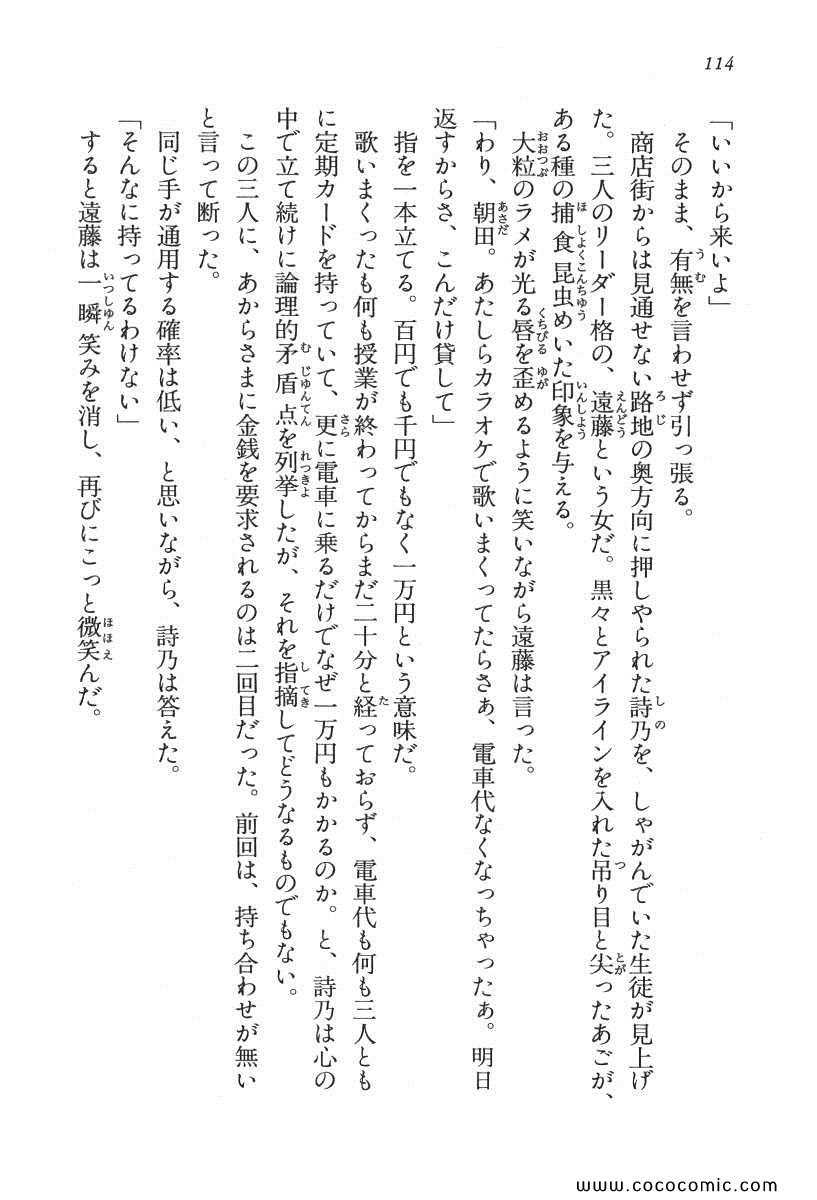 114
「いいから来いよ」
そのまま、有無を言わせず引っ張る。
商店街からは見通せない路地の奥方向に押しやられた詩乃を、しゃがんでいた生徒が見上げ
た。三人のリーダー格の、遠藤という女だ。黒々とアイラインを入れた吊り目と尖ったあごが、
ある種の捕食昆虫めいた印象を与える。
大粒のラメが光る唇を歪めるように笑いながら遠藤は言った。
「わり、朝田。あたしらカラオケで歌いまくってたらさぁ、電車代なくなっちゃったぁ。明日
返すからさ、こんだけ貸して」
指を一本立てる。百円でも千円でもなく一万円という意味だ。
歌いまくったも何も授業が終わってからまだ二十分と経っておらず、電車代も何も三人とも
に定期カードを持っていて、更に電車に乗るだけでなぜ一万円もかかるのか。と、詩乃は心の
中で立て続けに論理的矛盾点を列挙したが、それを指摘してどうなるものでもない。
この三人に、あからさまに金銭を要求されるのは二回目だった。前回は、持ち合わせが無い
と言って断った。
同じ手が通用する確率は低い、と思いながら、詩乃は答えた。
「そんなに持ってるわけない」
すると遠藤は一瞬笑みを消し、再びにこっと微笑んだ。
www.cococomic.com/